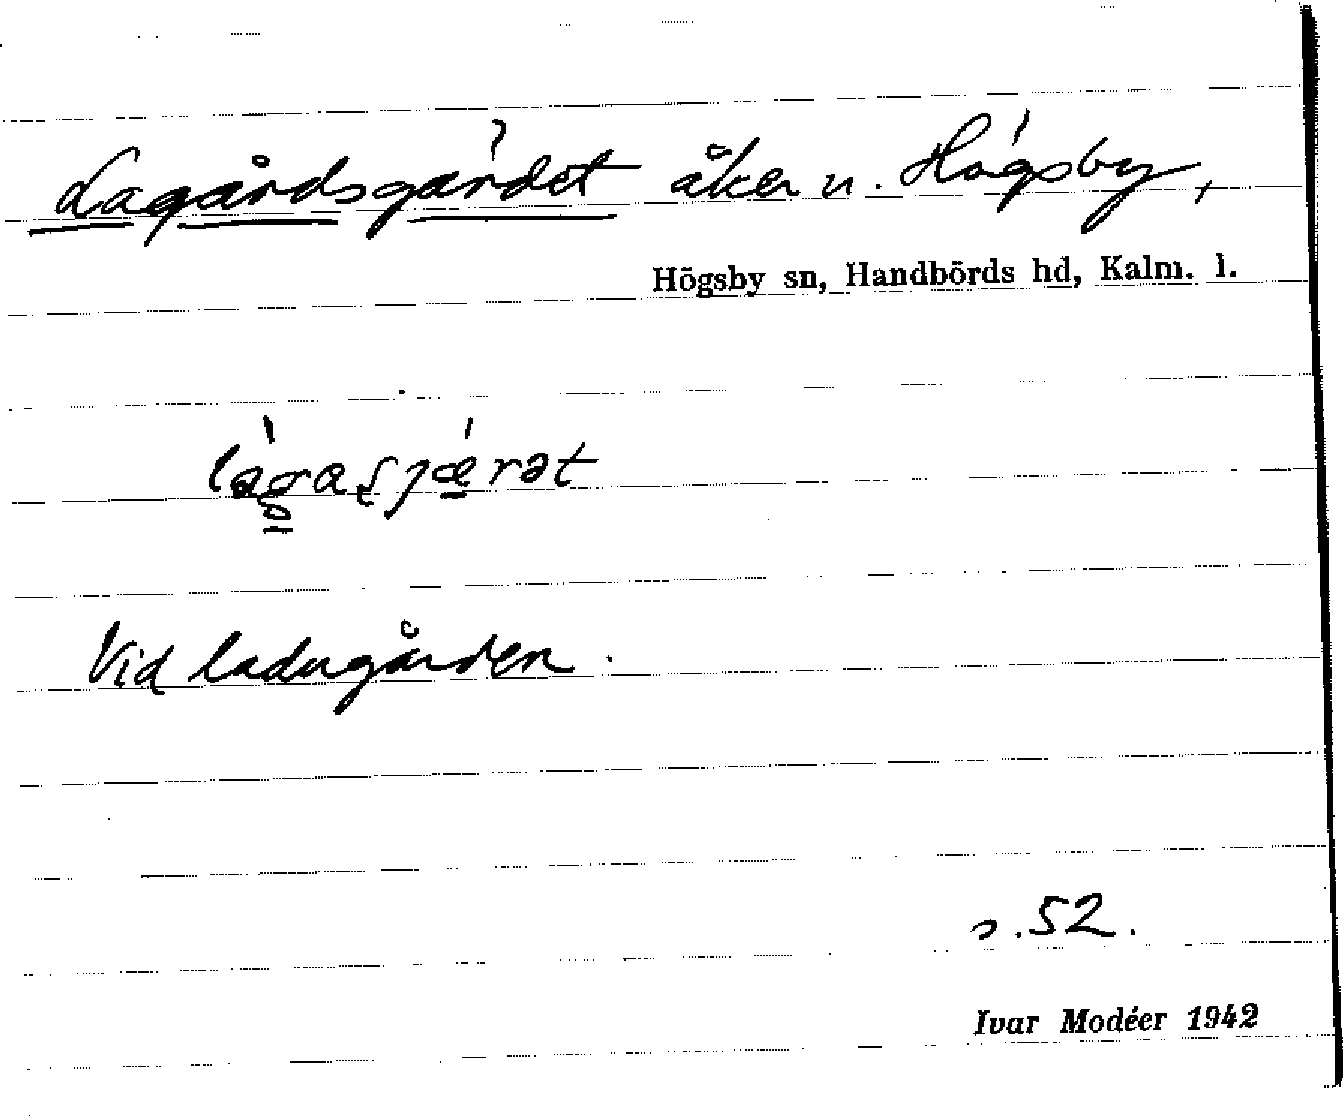 Lagårdsgärdet åker u. Högsby,
Högsby sn, Handbörds hd, Kalm. l.
Vid ladugården.
s. 52.
Ivar Modéer 1942